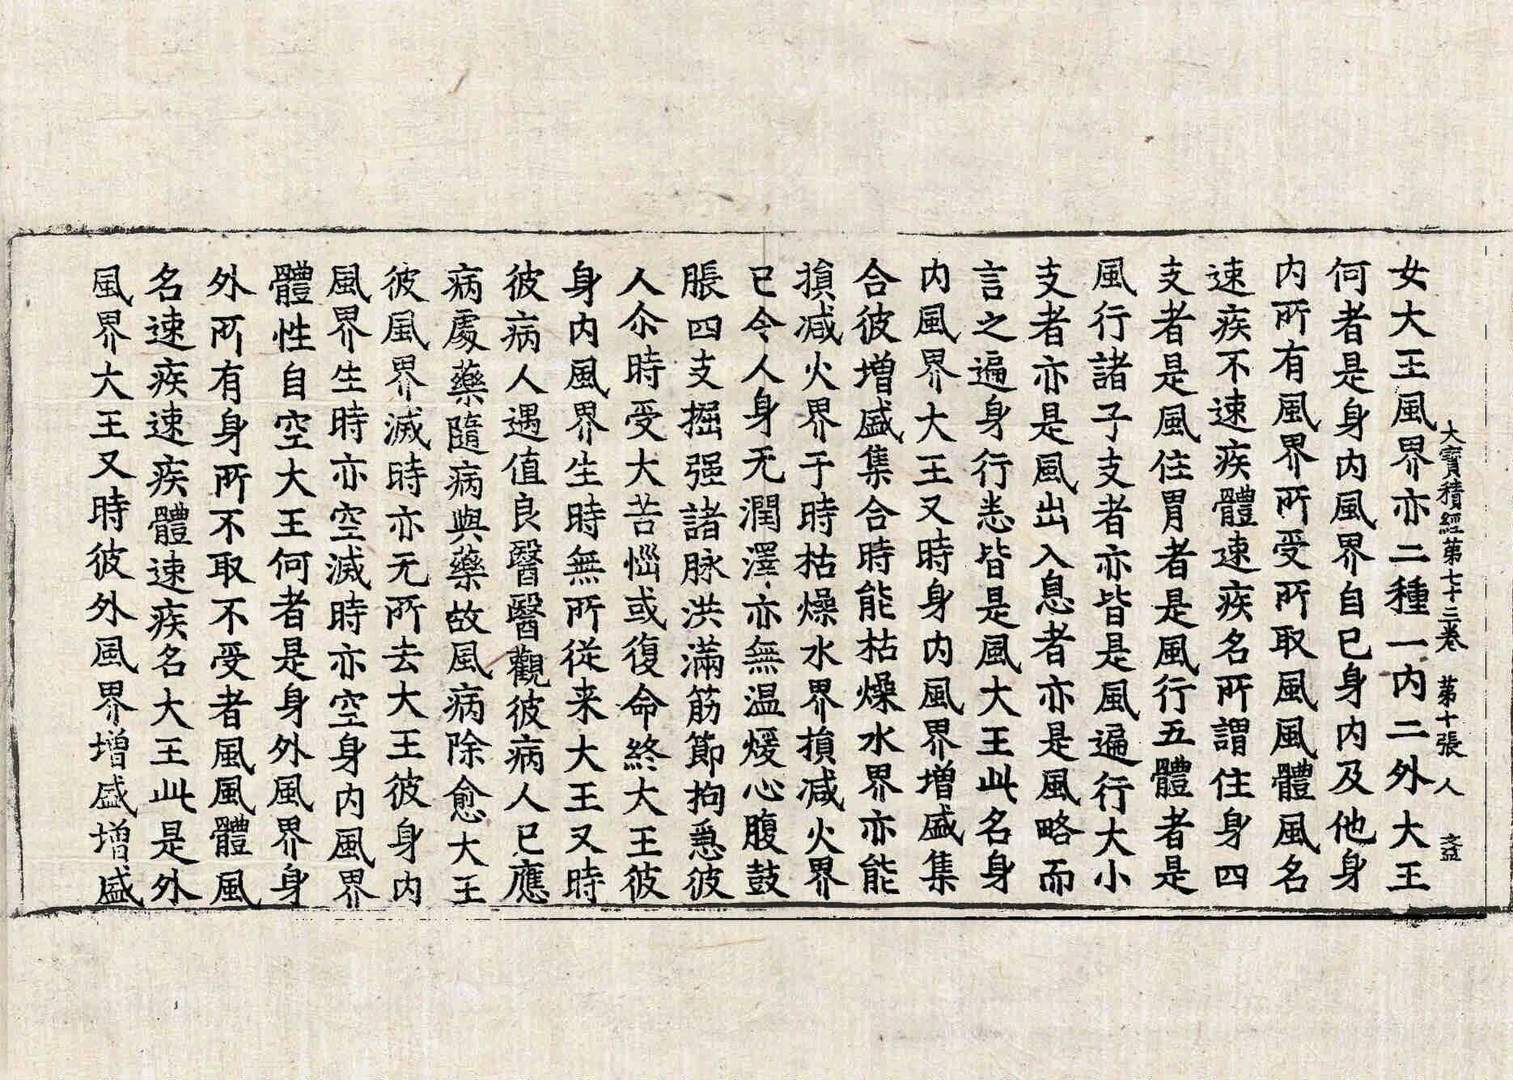 大寳積經第七十三卷 第十張 人
女大王風界亦二種一內二外大王
何者是身內風界自已身內及他身
內所有風界所受所取風風體風名
速疾不速疾體速疾名所謂住身四
支者是風住胃者是風行五體者是
風行諸子支者亦皆是風遍行大小
支者亦是風出入息者亦是風略而
言之遍身行悉皆是風大王此名身
內風界大王又時身內風界增盛集
合彼增盛集合時能枯燥水界亦能
損減火界于時枯燥水界損減火界
已令人身无潤澤亦無溫煖心腹鼓
脹四支掘强諸脉洪滿筋節拘急彼
人尒時受大苦惱或復命終大王彼
身內風界生時無所從来大王又時
彼病人遇值良醫醫觀彼病人已應
病處藥隨病與藥故風病除愈大王
彼風界滅時亦无所去大王彼身內
風界生時亦空滅時亦空身內風界
體性自空大王何者是身外風界身
外所有身所不取不受者風風體風
名速疾速疾體速疾名大王此是外
風界大王又時彼外風界增盛增盛